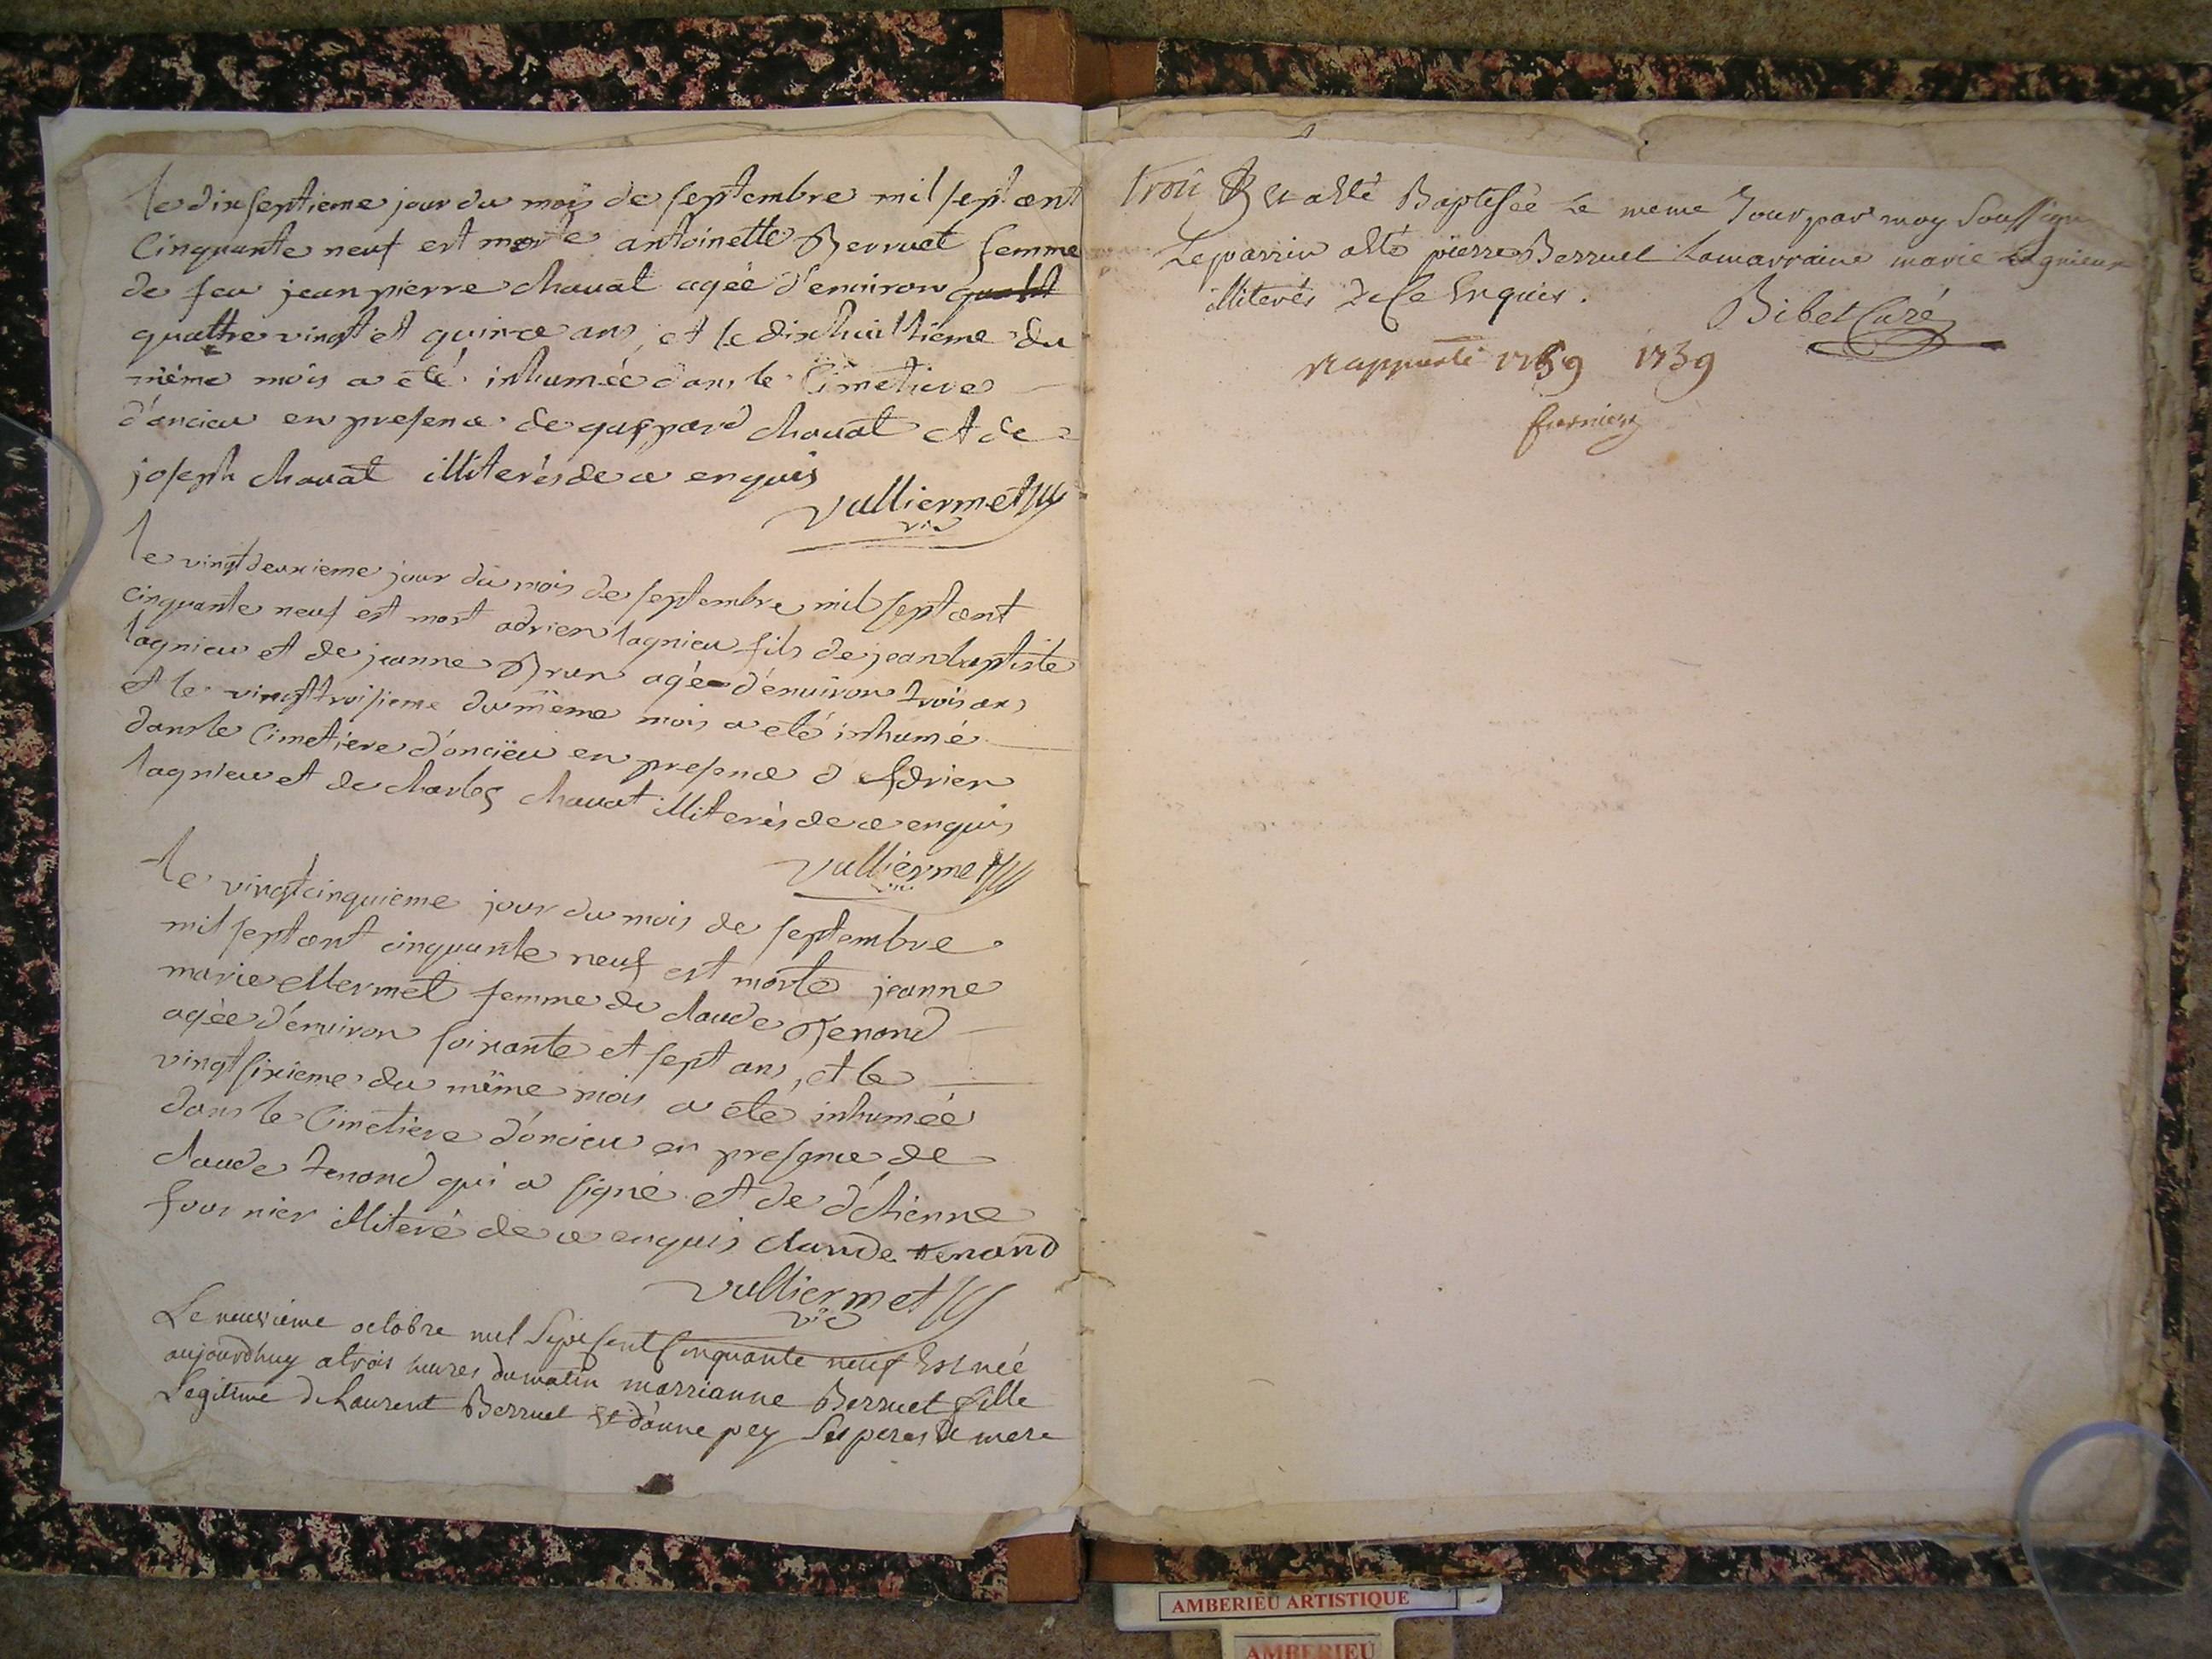 le dixseptieme jour du mois de septembre mil sept cent
Cinquante neuf est morte antoinette Berruet femme
de feu jean pierre chavat agée d'environ
quattre vingt et quinze ans, et le dixhuittieme du
même mois a été inhumée dans le Cimetiere
d'oncieu en presence de gaspard chavat et de
joseph chavat illiterés de ce enquis
Vulliermet
vic
le vingtdeuxieme jour du mois de septembre mil sept cent
cinquante neuf est mort adrien lagnieu fils de jean baptiste
lagnieu et de jeanne Brun agé d'environ trois ans
et le vingttroisieme du même mois a été inhumé
dans le Cimetiere d'oncieu en presence d Adrien
lagnieu et de charles chavat illiterés de ce enquis
Vulliermet
vic
le vingtcinquieme jour du mois de septembre
mil sept cent cinquante neuf est morte jeanne
marie Mermet femme de claude Tenand
agée d'environ soixante et sept ans, et le
vingtsixieme du même mois a été inhumée
dans le Cimetiere d'oncieu en presence de
claude tenand qui a signé et de d'étienne
fournier illiteré de ce enquis claude tenand
Vulliermet
vic
Le neuvieme octobre mil Sept Cent Cinquante neuf Est née
aujourdhuy a trois heures du matin marrianne Berruet fille
Legitime de Laurent Berruet et d'anne pey Ses peres et mere
Et a esté Baptisée Le meme Jour par moy Soussigné
Le parrin a esté pierre Berruet La marraine marie Lagnieux
illiterés de Ce Enquis.
Bibet Curé
Rapporté 1759 1759
AMBERIEU ARTISTIQUE
AMBERIEU